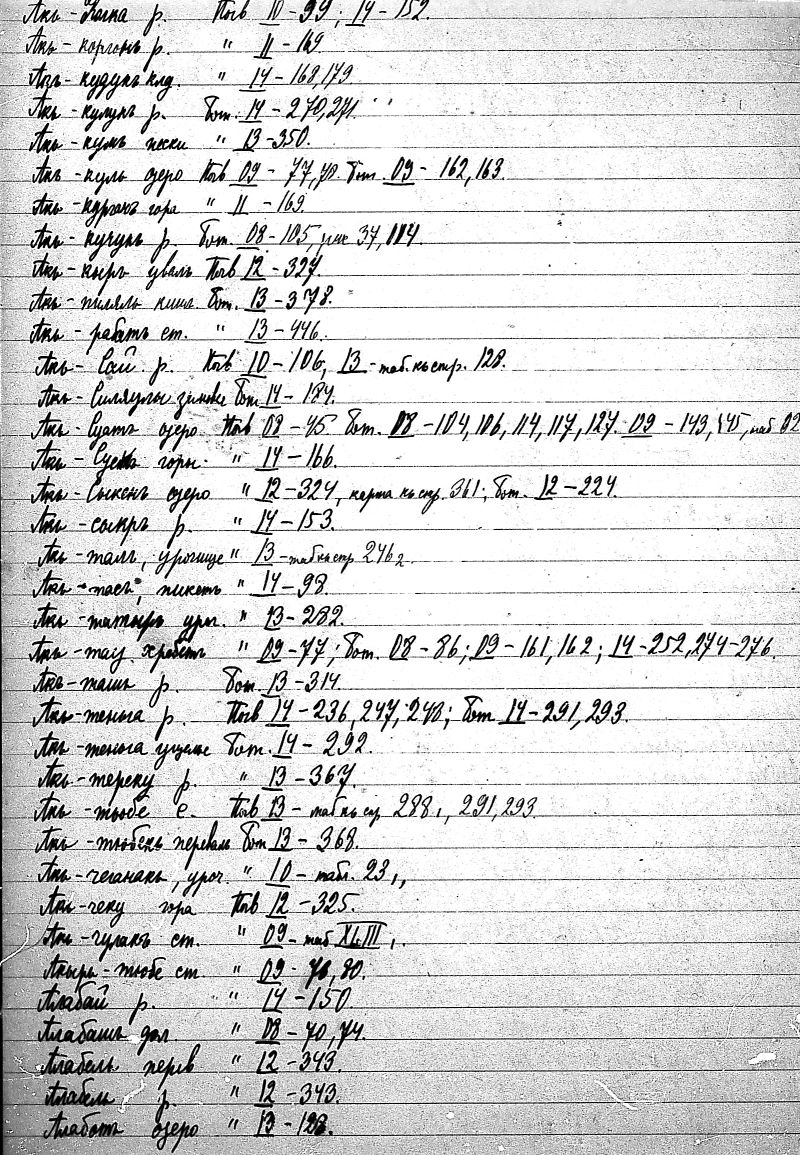 Акъ-Кагка р. Поч 10-99; 14-152.
Акъ-коргонъ р. " 11-169
Акъ-кудукъ клд. " 14-168,179
Акъ-кумукъ р. Бот. 14-270,271.
Акъ-кумъ пески " 13-350.
Акъ-куль озеро Поч 09-77,78. Бот. 09-162,163.
Акъ-курганъ гора " 11-169
Акъ-кучукъ р. Бот. 08-105, рис 37, 114.
Акъ-кыръ увалъ Поч 12-327.
Акъ-пиляль кишл. Бот. 13-378.
Акъ-рабатъ ст. " 13-446.
Акъ-Сай р. Поч 10-106, 13-таб. къ стр. 128.
Акъ-Силяулы зимовка Бот 14-184.
Акъ-Суатъ озеро Поч 08-45 Бот. 08-104,106,114,117,127. 09-143,145, таб
Акъ-Суекъ горы " 14-166.
Акъ-Сыкенъ озеро " 12-324, карта къ стр. 361; Бот. 12-224.
Акъ-сыиръ р. " 14-153.
Акъ-талъ, урочище " 13-таб къ стр 246₂
Акъ-тасъ, пикетъ " 14-98.
Акъ-татыръ уроч. " 13-282.
Акъ-тау хребетъ " 09-77; Бот. 08-86; 09-161,162; 14-252,274-276.
Акъ-ташъ р. Бот. 13-314.
Акъ-теньга р. Поч 14-236,247,248; Бот 14-291,293.
Акъ-теньга ущелье Бот. 14-292.
Акъ-тереку р. " 13-367.
Акъ-тюбе с. Поч 13-таб къ стр 288₁, 291,293.
Акъ-тюбекъ перевалъ Бот 13-368.
Акъ-чеганакъ, уроч. " 10-табл. 23₁,
Акъ-чеку гора Поч 12-325.
Акъ-чулакъ ст. " 09-таб XLIII₁.
Акыръ-тюбе ст " 09-78,80.
Алабай р. " 14-150
Алабашъ дол. " 08-70,74.
Алабель перев " 12-343.
Алабель р. " 12-343.
Алаботъ озеро " 13-128.